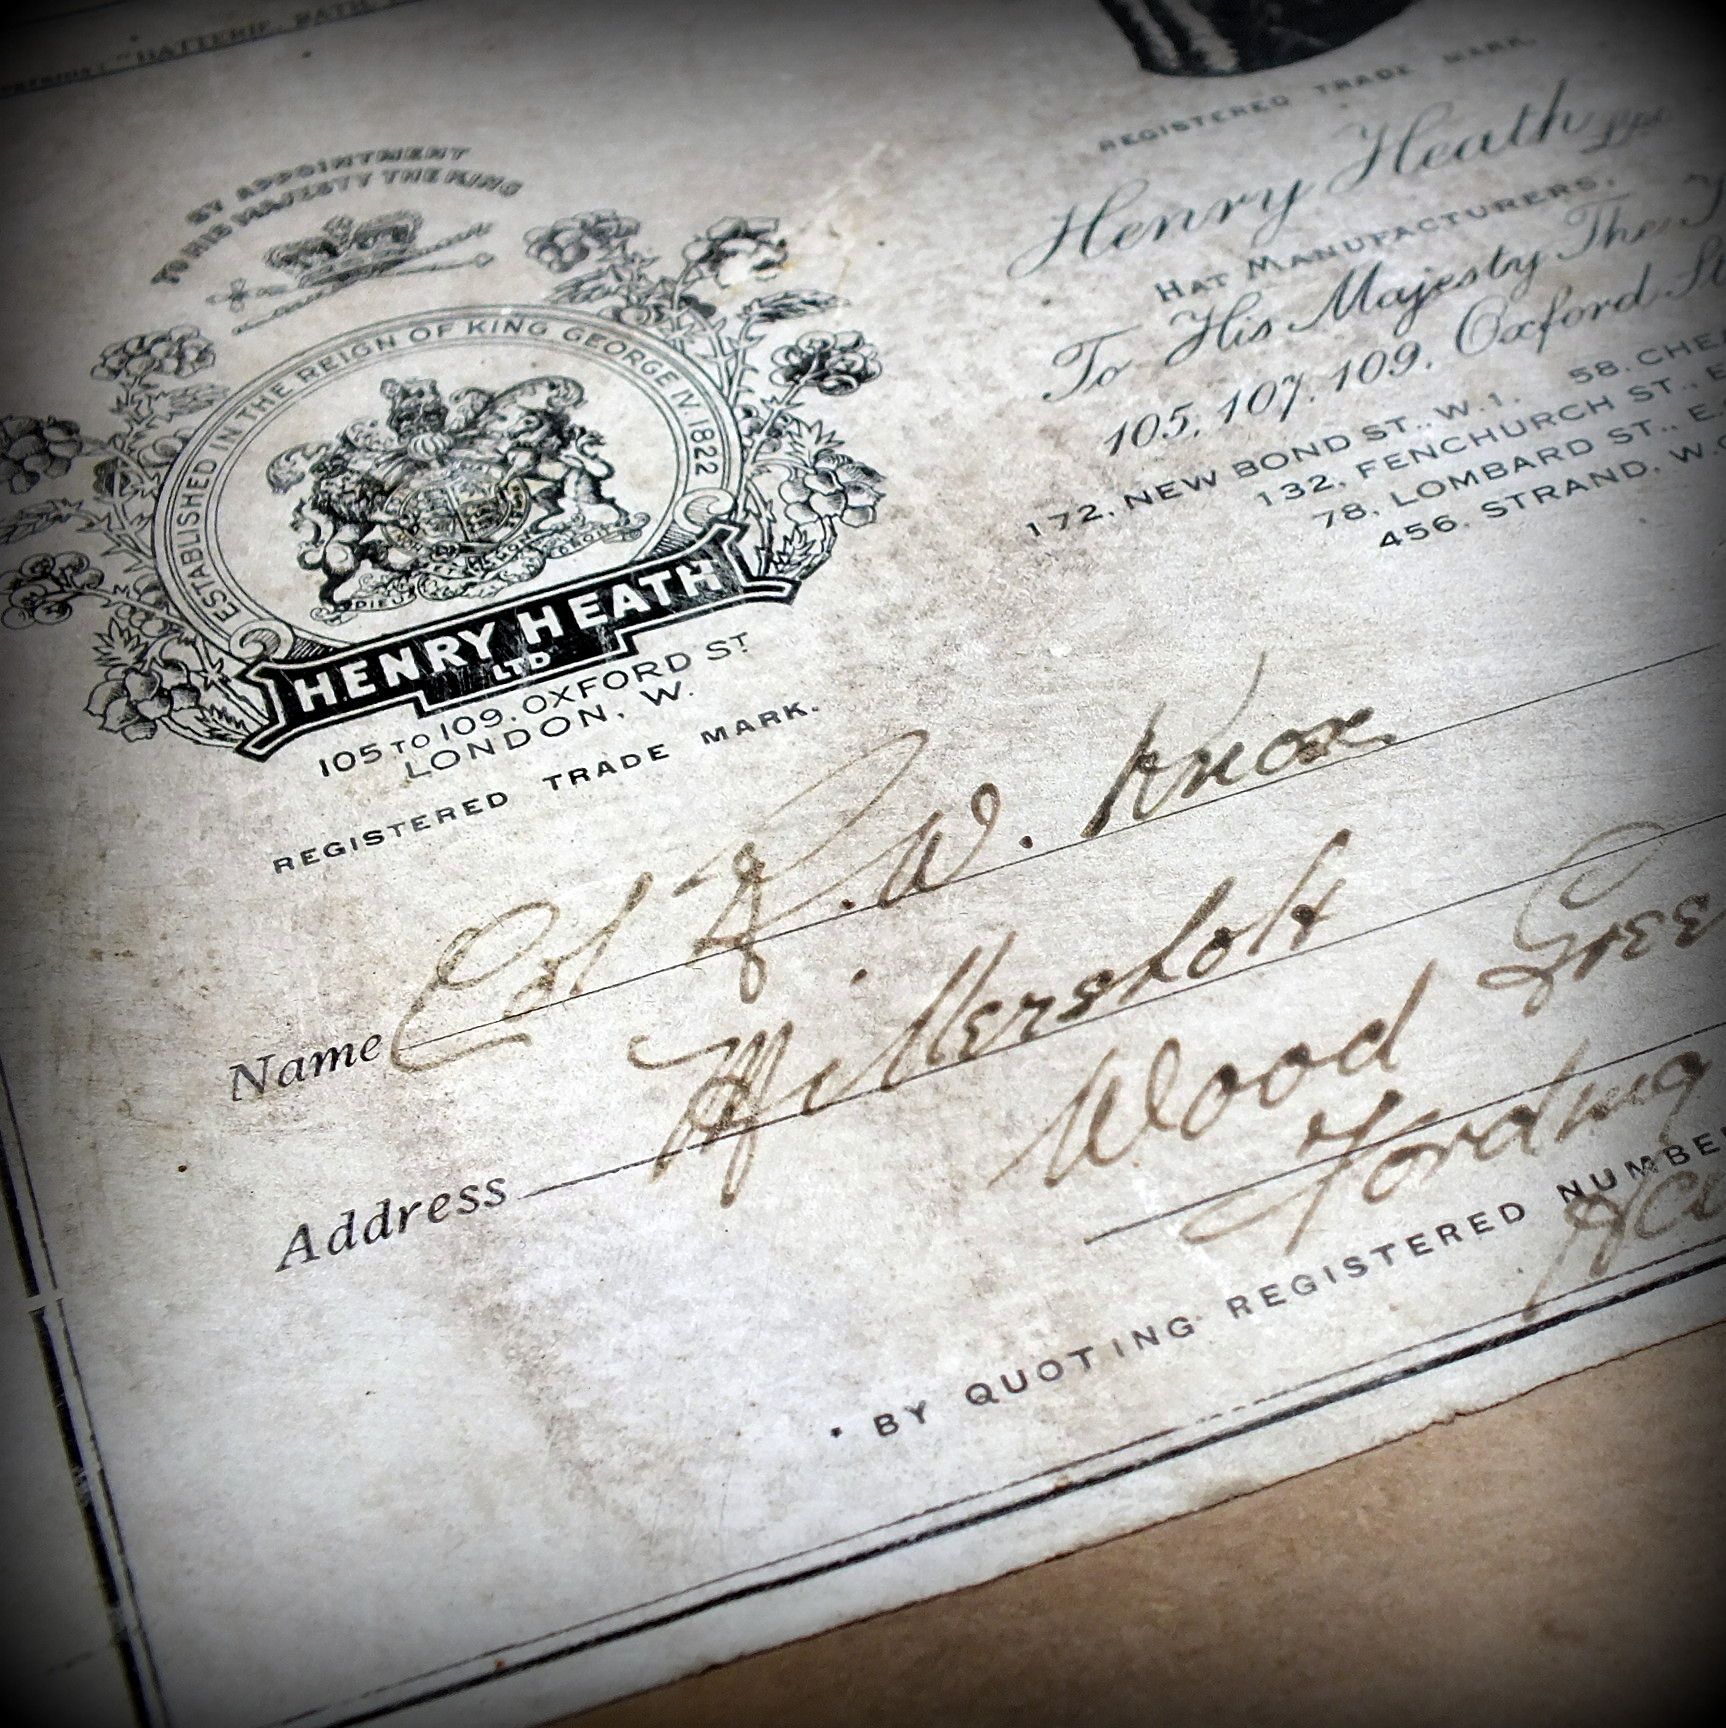 "HATTERIE, BATH.
REGISTERED TRADE MARK.
BY APPOINTMENT
TO HIS MAJESTY THE KING
ESTABLISHED IN THE REIGN OF KING GEORGE IV. 1822
DIEU
HENRY HEATH
LTD
105 TO 109. OXFORD ST
LONDON, W.
REGISTERED TRADE MARK.
Henry Heath Ltd
HAT MANUFACTURERS.
To His Majesty The
105, 107, 109, Oxford St
172, NEW BOND ST., W.1. 58, CHE
132, FENCHURCH ST., E
78, LOMBARD ST., E.
456, STRAND, W.C
Name Col R. W. Knox
Address Millersholt
Wood Gree
BY QUOTING REGISTERED NUMBE